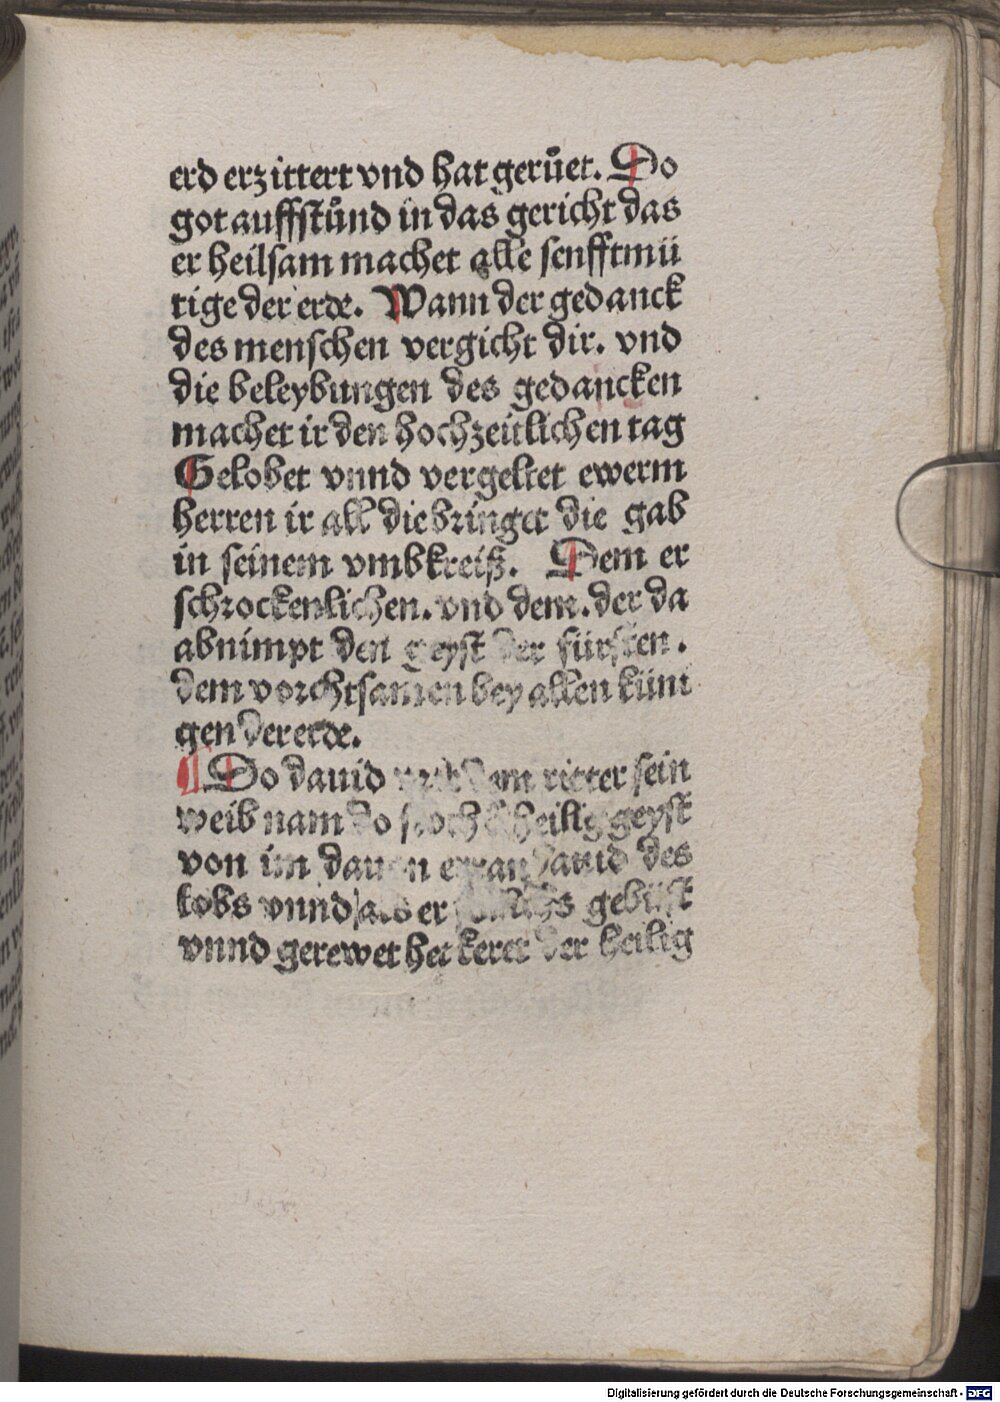 erd erzittert vnd hat gerůet. Do
got auffstůnd in das gericht das
er heilsam machet alle senfftmü
tige der erde. Wann der gedanck
des menschen vergicht dir. vnd
die beleybungen des gedancken
machet ir den hochzeitlichen tag
Gelobet vnnd vergeltet ewerm
herren ir all die bringet die gab
in seinem vmbkreiß. Dem er
schrockenlichen. vnd dem. der da
abnimpt den geyst der fürsten.
dem vorchtsamen bey allen küni
gen der erde.
Do dauid dem ritter sein
weib nam do heilig geyst
von im dauon dauid des
lobs vnnd als er gebüst
vnnd gerewet het keret der heilig
Digitalisierung gefördert durch die Deutsche Forschungsgemeinschaft - DFG